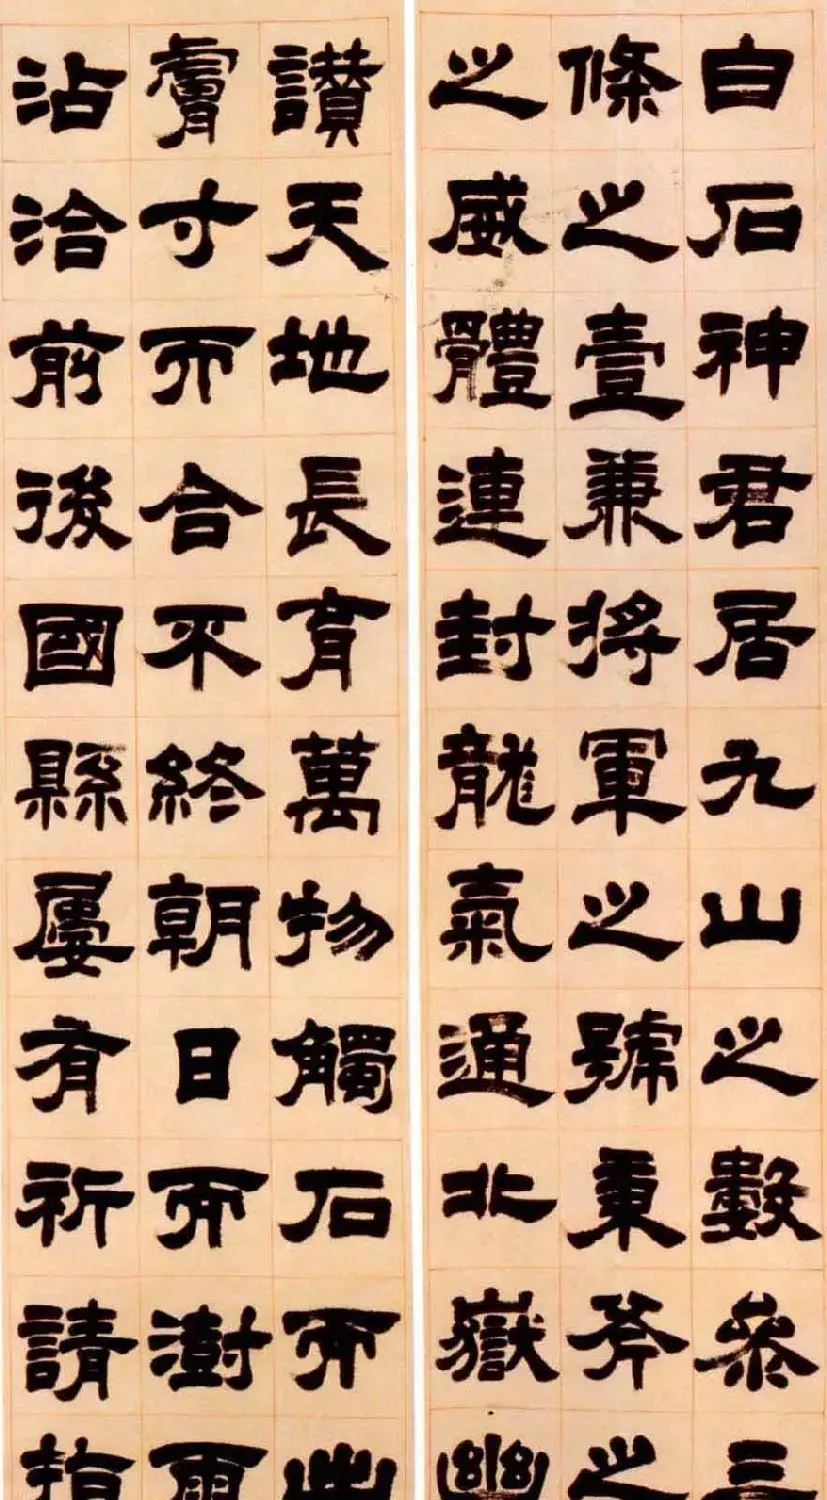 白石神君居九山之數參三
條之壹兼將軍之號秉斧之
之威體連封龍氣通北嶽幽
讃天地長育萬物觸石而出
膚寸而合不終朝日而澍雨
沾洽前後國縣屢有祈請指